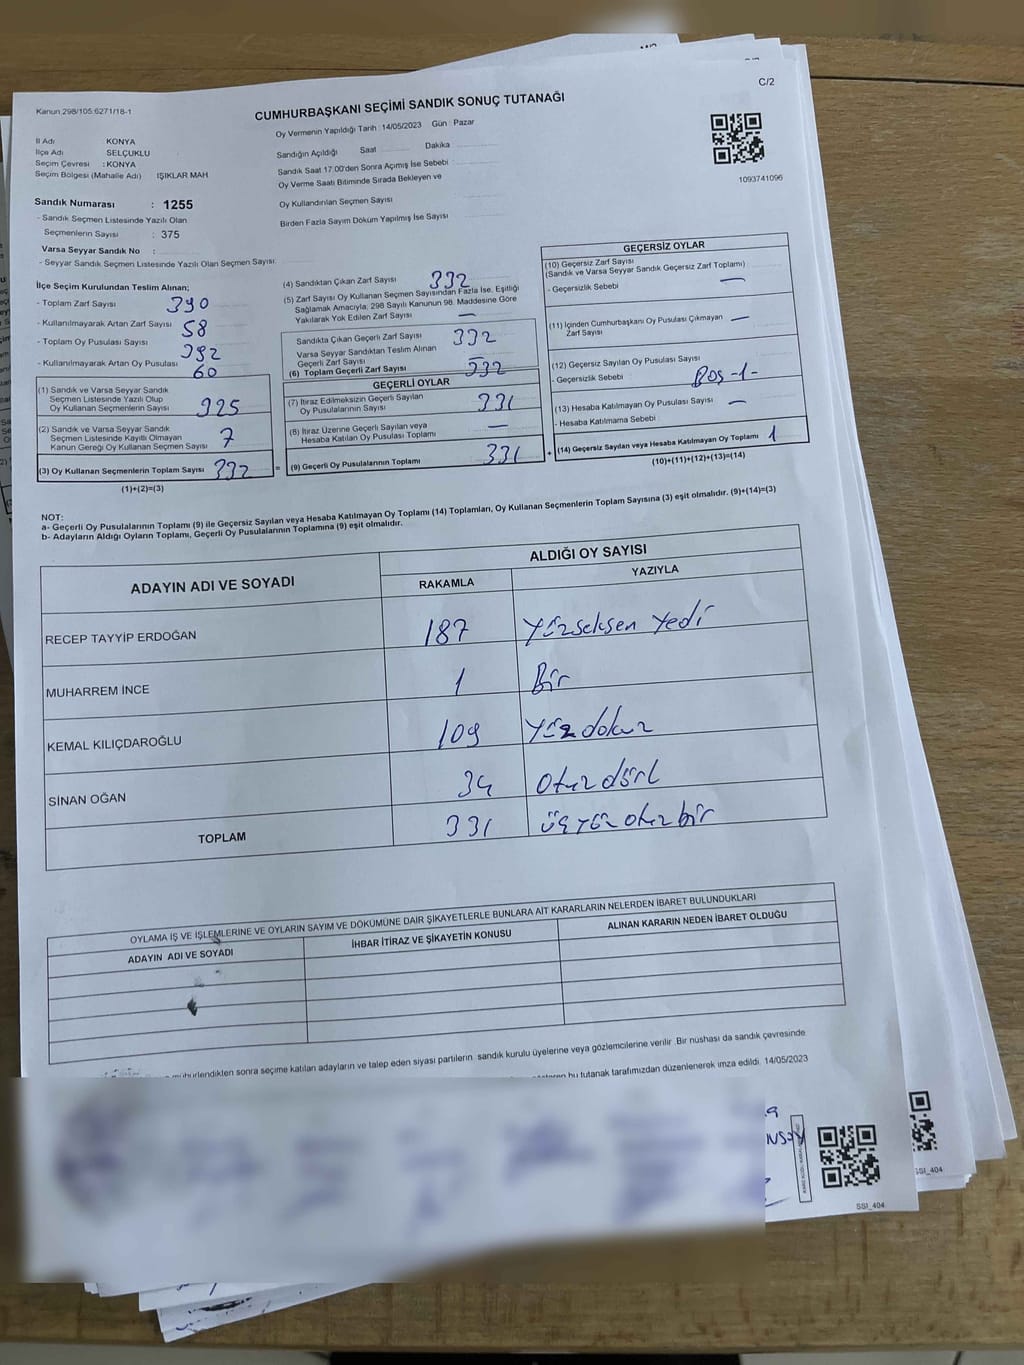 C/2
Kanun 298/105:6271/18-1
CUMHURBAŞKANI SEÇİMİ SANDIK SONUÇ TUTANAĞI
Oy Vermenin Yapıldığı Tarih 14/05/2023 Gün Pazar
İl Adı KONYA
İlçe Adı SELÇUKLU
Seçim Çevresi : KONYA
Seçim Bölgesi (Mahalle Adı) IŞIKLAR MAH
Sandığın Açıldığı Saat Dakika
Sandık Saat 17:00'den Sonra Açımış İse Sebebi
Oy Verme Saati Bitiminde Sırada Bekleyen ve
Oy Kullandırılan Seçmen Sayısı
Birden Fazla Sayım Döküm Yapılmış İse Sayısı
1093741096
Sandık Numarası : 1255
- Sandık Seçmen Listesinde Yazılı Olan
Seçmenlerin Sayısı : 375
Varsa Seyyar Sandık No :
- Seyyar Sandık Seçmen Listesinde Yazılı Olan Seçmen Sayısı:
İlçe Seçim Kurulundan Teslim Alınan;
- Toplam Zarf Sayısı 390
- Kullanılmayarak Artan Zarf Sayısı 58
- Toplam Oy Pusulası Sayısı 392
- Kullanılmayarak Artan Oy Pusulası 60
(1) Sandık ve Varsa Seyyar Sandık
Seçmen Listesinde Yazılı Olup
Oy Kullanan Seçmenlerin Sayısı 325
(2) Sandık ve Varsa Seyyar Sandık
Seçmen Listesinde Kayıtlı Olmayan
Kanun Gereği Oy Kullanan Seçmen Sayısı 7
(3) Oy Kullanan Seçmenlerin Toplam Sayısı 332
(1)+(2)=(3)
(4) Sandıktan Çıkan Zarf Sayısı 332
(5) Zarf Sayısı Oy Kullanan Seçmen Sayısından Fazla İse, Eşitliği
Sağlamak Amacıyla; 298 Sayılı Kanunun 98. Maddesine Göre
Yakılarak Yok Edilen Zarf Sayısı —
Sandıkta Çıkan Geçerli Zarf Sayısı 332
Varsa Seyyar Sandıktan Teslim Alınan
Geçerli Zarf Sayısı —
(6) Toplam Geçerli Zarf Sayısı 332
GEÇERLİ OYLAR
(7) İtiraz Edilmeksizin Geçerli Sayılan
Oy Pusulalarının Sayısı 331
(8) İtiraz Üzerine Geçerli Sayılan veya
Hesaba Katılan Oy Pusulası Toplamı —
= (9) Geçerli Oy Pusulalarının Toplamı 331
GEÇERSİZ OYLAR
(10) Geçersiz Zarf Sayısı
(Sandık ve Varsa Seyyar Sandık Geçersiz Zarf Toplamı)
- Geçersizlik Sebebi —
(11) İçinden Cumhurbaşkanı Oy Pusulası Çıkmayan —
Zarf Sayısı
(12) Geçersiz Sayılan Oy Pusulası Sayısı
- Geçersizlik Sebebi Boş -1-
(13) Hesaba Katılmayan Oy Pusulası Sayısı —
- Hesaba Katılmama Sebebi
+ (14) Geçersiz Sayılan veya Hesaba Katılmayan Oy Toplamı 1
(10)+(11)+(12)+(13)=(14)
NOT:
a- Geçerli Oy Pusulalarının Toplamı (9) ile Geçersiz Sayılan veya Hesaba Katılmayan Oy Toplamı (14) Toplamları, Oy Kullanan Seçmenlerin Toplam Sayısına (3) eşit olmalıdır. (9)+(14)=(3)
b- Adayların Aldığı Oyların Toplamı, Geçerli Oy Pusulalarının Toplamına (9) eşit olmalıdır.
ADAYIN ADI VE SOYADI ALDIĞI OY SAYISI
RAKAMLA YAZIYLA
RECEP TAYYİP ERDOĞAN 187 Yüzseksen Yedi
MUHARREM İNCE 1 Bir
KEMAL KILIÇDAROĞLU 109 Yüzdokuz
SİNAN OĞAN 34 Otuzdört
TOPLAM 331 üçyüz otuzbir
OYLAMA İŞ VE İŞLEMLERİNE VE OYLARIN SAYIM VE DÖKÜMÜNE DAİR ŞİKAYETLERLE BUNLARA AİT KARARLARIN NELERDEN İBARET BULUNDUKLARI
ADAYIN ADI VE SOYADI İHBAR İTİRAZ VE ŞİKAYETİN KONUSU ALINAN KARARIN NEDEN İBARET OLDUĞU
mühürlendikten sonra seçime katılan adayların ve talep eden siyasi partilerin sandık kurulu üyelerine veya gözlemcilerine verilir. Bir nüshası da sandık çevresinde
bu tutanak tarafımızdan düzenlenerek imza edildi. 14/05/2023
SSI_404
SSI_404